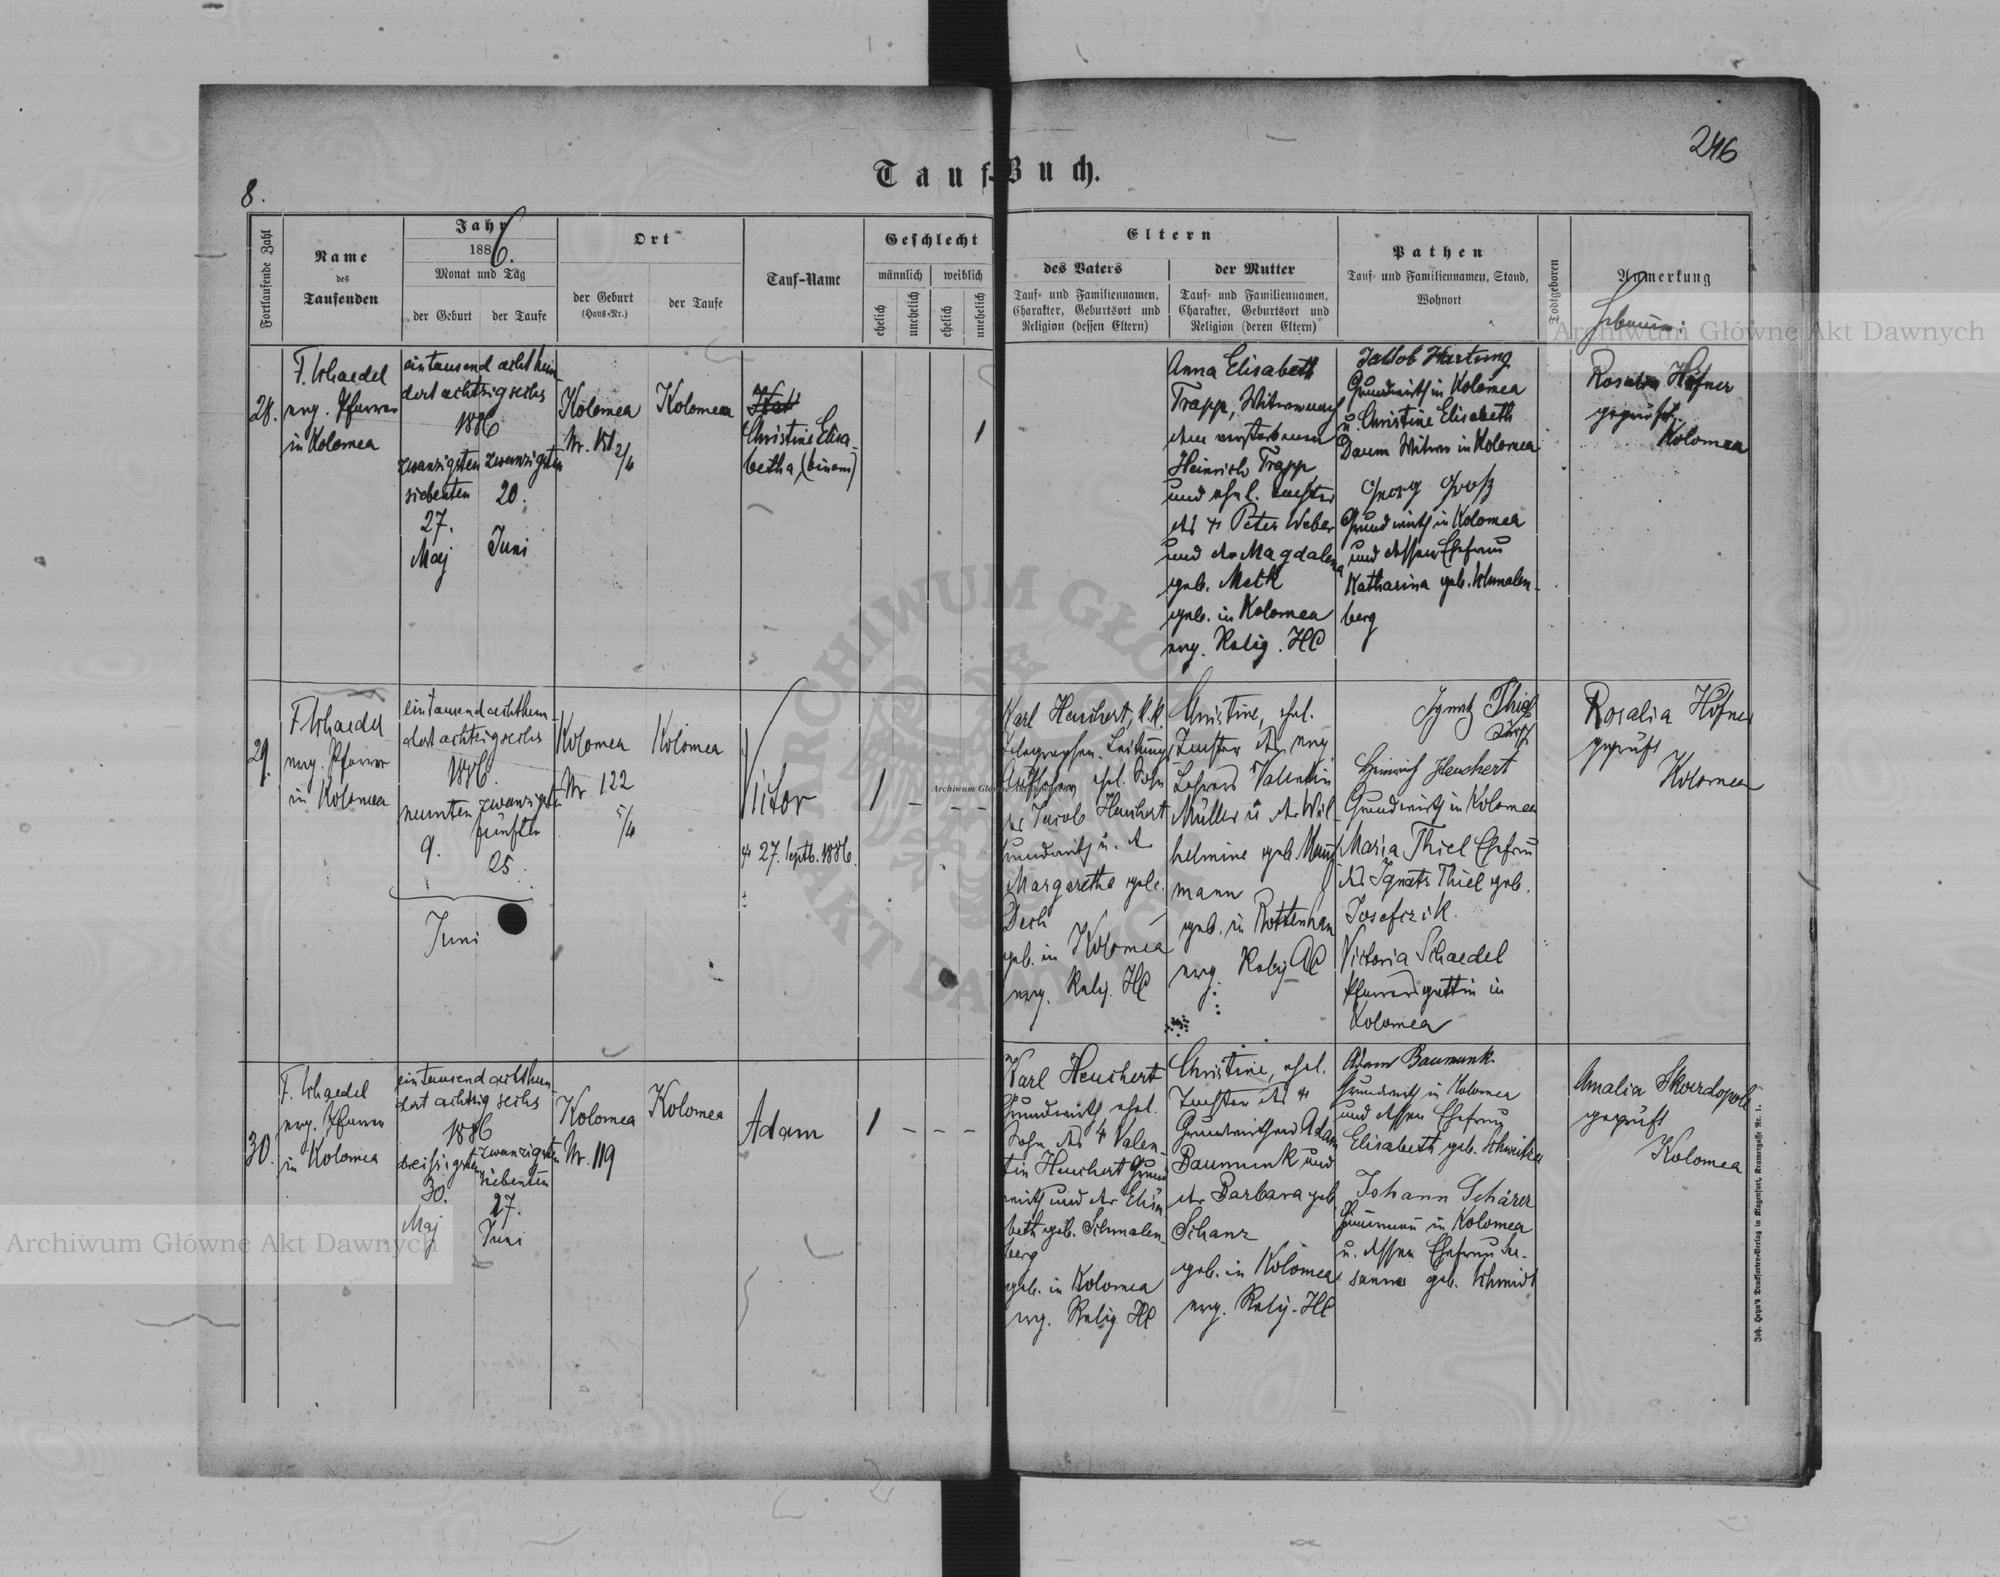 246
8.
Tauf-Buch.
Fortlaufende Zahl
Name
des
Taufenden
Jahr
1886.
Monat und Tag
der Geburt
der Taufe
Ort
der Geburt
(Haus-Nr.)
der Taufe
Tauf-Name
Geschlecht
männlich
weiblich
ehelich
unehelich
ehelich
unehelich
Eltern
des Vaters
Tauf- und Familiennamen,
Charakter, Geburtsort und
Religion (dessen Eltern)
der Mutter
Tauf- und Familiennamen,
Charakter, Geburtsort und
Religion (deren Eltern)
Pathen
Tauf- und Familiennamen, Stand,
Wohnort
Todtgeboren
Anmerkung
Hebamme:
28.
F. Schaedel
evg. Pfarrer
in Kolomea
eintausend achthun-
dert achtzigsechs
1886
zwanzigsten
siebenten
27.
Maj
zwanzigsten
20.
Juni
Kolomea
Nr.
2/4
Kolomea
Christine Elisa-
betha, (binom)
1
Anna Elisabeth
Trapp, Witwe nach
dem verstorbenen
Heinrich Trapp
und ehel. Tochter
des + Peter Weber
und der Magdalena
geb. Metk
geb. in Kolomea
evg. Relig. HC
Jakob Hartung
Grundwirth in Kolomea
u. Christine Elisabeth
Daum Witwe in Kolomea
Georg Groß
Grundwirth in Kolomea
und dessen Ehefrau
Katharina geb. Schmalen-
berg
Rosalia Höfner
geprüft
Kolomea
29.
F. Schaedel
evg. Pfarrer
in Kolomea
eintausend achthun-
dert achtzigsechs
1886.
neunten
9.
zwanzigsten
fünften
25.
Juni
Kolomea
Nr 122
5/4
Kolomea
Victor
+ 27. Septb. 1886.
1 - - -
Karl Heuchert, k.k.
Telegraphen-Leitungs
Aufseher ehel. Sohn
des Jacob Heuchert
Grundwirth u. der
Margaretha geb.
Dech
geb. in Kolomea
evg. Relig. HC
Christine, ehel.
Tochter des evg
Lehrers Valentin
Müller u der Wil-
helmine geb.
mann
geb. in Rottenhan
evg. Relig AC
Ignatz Thiel
Heinrich Heuchert
Grundwirth in Kolomea
Maria Thiel Ehefrau
des Ignatz Thiel geb.
Josefczik.
Victoria Schaedel
Pfarrersgattin in
Kolomea
Rosalia Höfner
geprüft
Kolomea
30.
F. Schaedel
evg. Pfarrer
in Kolomea
eintausend achthun-
dert achtzig sechs
1886
dreißigsten
30.
Maj
zwanzigsten
siebenten
27.
Juni
Kolomea
Nr. 119
Kolomea
Adam
1 - - -
Karl Heuchert
Grundwirth ehel.
Sohn des + Valen-
tin Heuchert Grund
wirth und der Elisa
beth geb. Schmalen
berg
geb. in Kolomea
evg. Relig. HC
Christine, ehel.
Tochter des +
Grundwirthen Adam
Baumunk und
der Barbara geb
Schanz
geb. in Kolomea
evg. Relig. HC
Adam Baumunk.
Grundwirth in Kolomea
und dessen Ehefrau
Elisabeth geb. Schweitzer
Johann Schärer
in Kolomea
u. dessen Ehefrau Su-
sanna geb. Schmidt
Amalia Skordopole
geprüft
Kolomea
Joh. Heyn's Drucksorten-Verlag in Klagenfurt, Kramergasse Nr. 1.
Archiwum Główne Akt Dawnych
Archiwum Główne Akt Dawnych